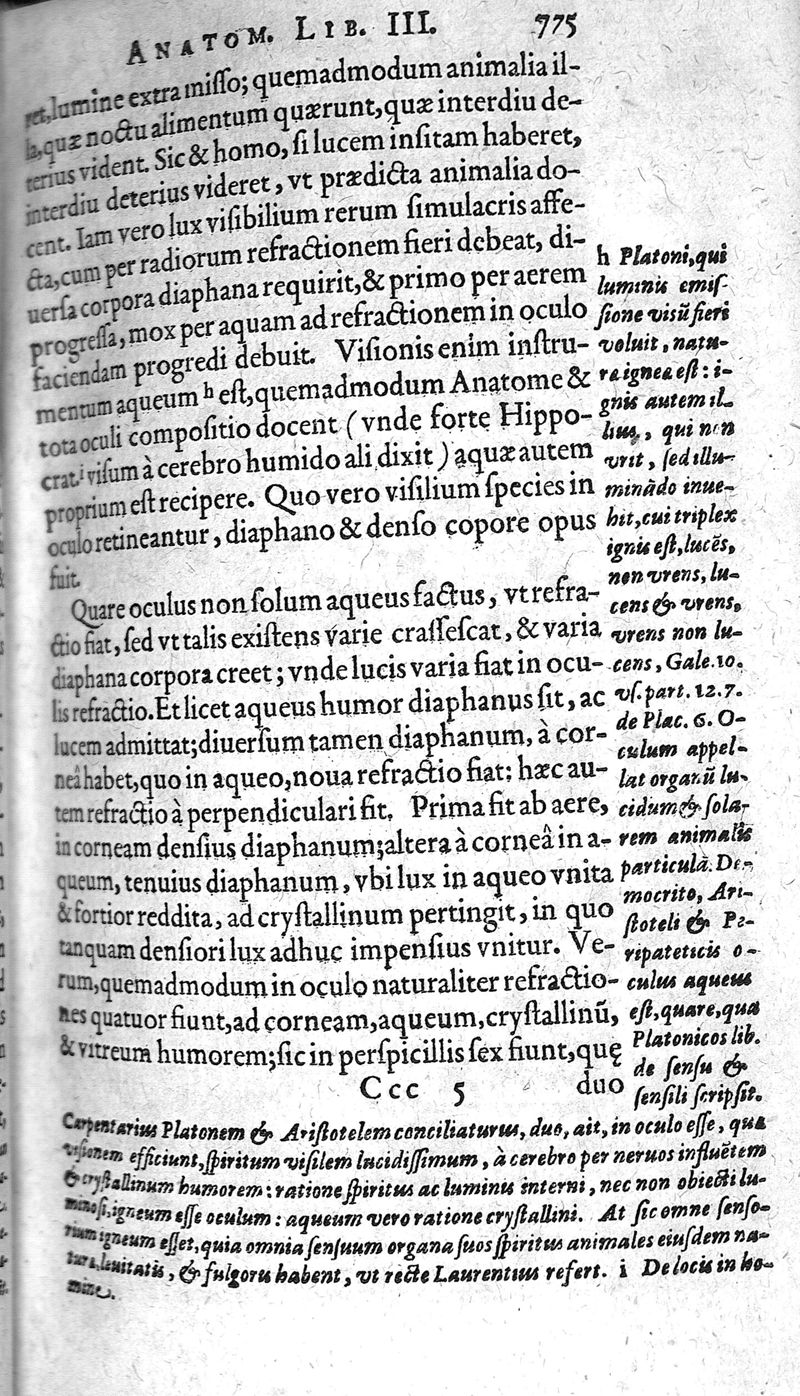 ANATOM. LIB. III. 775
ret, lumine extra misso; quemadmodum animalia il-
la, quæ noctu alimentum quærunt, quæ interdiu de-
terius vident. Sic & homo, si lucem insitam haberet,
interdiu deterius videret, vt prædicta animalia do-
cent. Iam vero lux visibilium rerum simulacris affe-
cta, cum per radiorum refractionem fieri debeat, di-
uersa corpora diaphana requirit, & primo per aerem
progressa, mox per aquam ad refractionem in oculo
faciendam progredi debuit. Visionis enim instru-
mentum aqueum h est, quemadmodum Anatome &
tota oculi compositio docent (vnde forte Hippo-
crati i visum à cerebro humido ali dixit) aquæ autem
proprium est recipere. Quo vero visilium species in
oculo retineantur, diaphano & denso copore opus
fuit.
Quare oculus non solum aqueus factus, vt refra-
ctio fiat, sed vt talis existens varie crassescat, & varia
diaphana corpora creet; vnde lucis varia fiat in ocu-
lis refractio. Et licet aqueus humor diaphanus sit, ac
lucem admittat; diuersum tamen diaphanum, à cor-
neâ habet, quo in aqueo, noua refractio fiat: hæc au-
tem refractio à perpendiculari fit. Prima fit ab aere,
in corneam densius diaphanum; altera à corneâ in a-
queum, tenuius diaphanum, vbi lux in aqueo vnita
& fortior reddita, ad crystallinum pertingit, in quo
tanquam densiori lux adhuc impensius vnitur. Ve-
rum, quemadmodum in oculo naturaliter refractio-
nes quatuor fiunt, ad corneam, aqueum, crystallinũ,
& vitreum humorem; sic in perspicillis sex fiunt, quę
Ccc 5 duo
h Platoni, qui
luminis emis-
sione visũ fieri
voluit, natu-
ra ignea est: i-
gnis autem il-
lius, qui non
vrit, sed illu-
minãdo inue-
hit, cui triplex
ignis est, lucẽs,
non vrens, lu-
cens & vrens,
vrens non lu-
cens, Gale. 10.
vs. part. 12. 7.
de Plac. 6. O-
culum appel-
lat organũ lu-
cidum & sola-
rem animalis
particulã. De-
mocrito, Ari-
stoteli & Pe-
ripateticis o-
culus aqueus
est, quare, qua
Platonicos lib.
de sensu &
sensili scripsit.
Carpentarius Platonem & Aristotelem conciliaturus, duo, ait, in oculo esse, quæ
visionem efficiunt, spiritum visilem lucidissimum, à cerebro per neruos influẽtem
& crystallinum humorem: ratione spiritus ac luminis interni, nec non obiecti lu-
minosi, igneum esse oculum: aqueum vero ratione crystallini. At sic omne senso-
rium igneum esset, quia omnia sensuum organa suos spiritus animales eiusdem na-
turæ, leuitatis, & fulgoris habent, vt recte Laurentius refert. i De locis in ho-
mine.